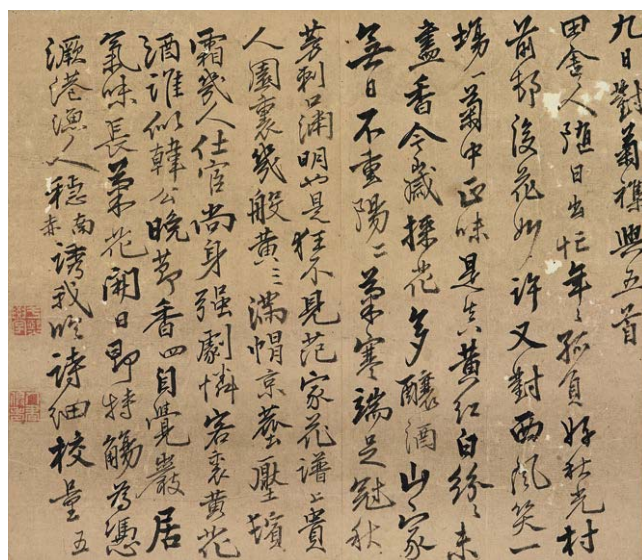 九日對菊襍興五首
田舍人随日出忙年〻孤負好秋光村
前邨後花如許又對西風笑一
塲一菊中正味是真黃紅白紛〻未
盡香今歲採花多釀酒山家
無日不重陽二菊寒端足冠秋
刺口淵明也是狂不見范家花譜上貴
人園裏幾般黃三滿帽京塵壓鬢
霜幾人仕宦尚身强劇憐客裏黃花
酒誰似韓公晚節香四自覺巖居
氣味長菊花開日即持觴為憑
港漁人穩南赤誘我吟詩細校量五